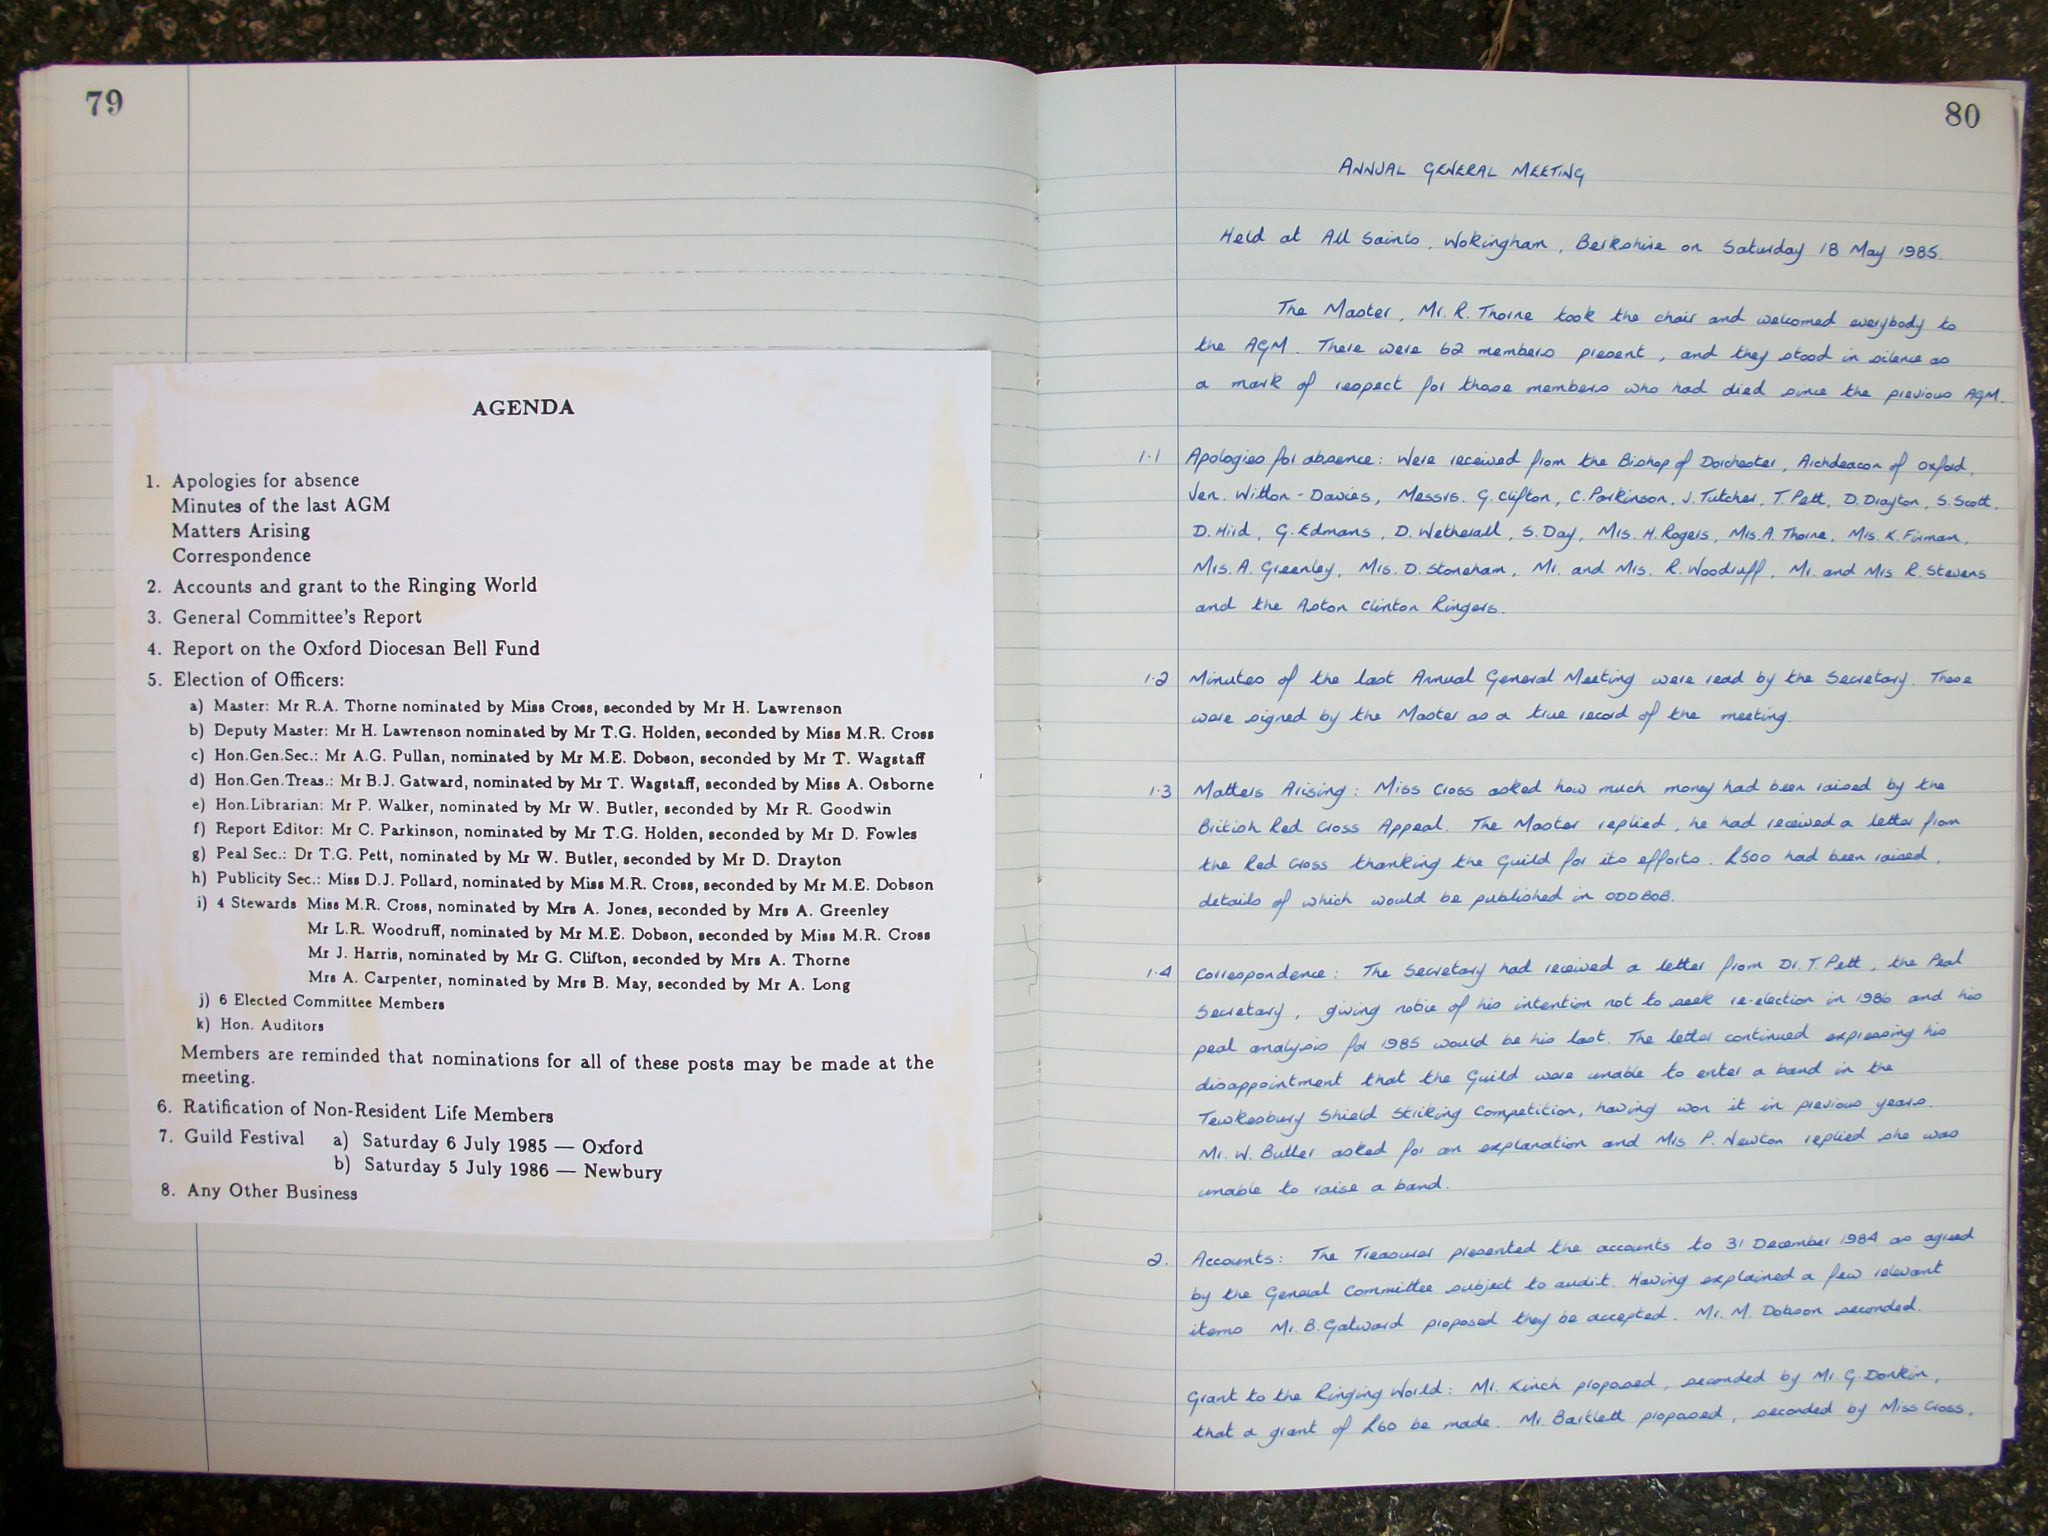 79
AGENDA
1. Apologies for absence
Minutes of the last AGM
Matters Arising
Correspondence
2. Accounts and grant to the Ringing World
3. General Committee's Report
4. Report on the Oxford Diocesan Bell Fund
5. Election of Officers:
a) Master: Mr R.A. Thorne nominated by Miss Cross, seconded by Mr H. Lawrenson
b) Deputy Master: Mr H. Lawrenson nominated by Mr T.G. Holden, seconded by Miss M.R. Cross
c) Hon.Gen.Sec.: Mr A.G. Pullan, nominated by Mr M.E. Dobson, seconded by Mr T. Wagstaff
d) Hon.Gen.Treas.: Mr B.J. Gatward, nominated by Mr T. Wagstaff, seconded by Miss A. Osborne
e) Hon.Librarian: Mr P. Walker, nominated by Mr W. Butler, seconded by Mr R. Goodwin
f) Report Editor: Mr C. Parkinson, nominated by Mr T.G. Holden, seconded by Mr D. Fowles
g) Peal Sec.: Dr T.G. Pett, nominated by Mr W. Butler, seconded by Mr D. Drayton
h) Publicity Sec.: Miss D.J. Pollard, nominated by Miss M.R. Cross, seconded by Mr M.E. Dobson
i) 4 Stewards Miss M.R. Cross, nominated by Mrs A. Jones, seconded by Mrs A. Greenley
Mr L.R. Woodruff, nominated by Mr M.E. Dobson, seconded by Miss M.R. Cross
Mr J. Harris, nominated by Mr G. Clifton, seconded by Mrs A. Thorne
Mrs A. Carpenter, nominated by Mrs B. May, seconded by Mr A. Long
j) 6 Elected Committee Members
k) Hon. Auditors
Members are reminded that nominations for all of these posts may be made at the
meeting.
6. Ratification of Non-Resident Life Members
7. Guild Festival a) Saturday 6 July 1985 — Oxford
b) Saturday 5 July 1986 — Newbury
8. Any Other Business
80
ANNUAL GENERAL MEETING
Held at All Saints, Wokingham, Berkshire on Saturday 18 May 1985.
The Master, Mr. R. Thorne took the chair and welcomed everybody to
the AGM. There were 62 members present, and they stood in silence as
a mark of respect for those members who had died since the previous AGM.
1.1 Apologies for absence: Were received from the Bishop of Dorchester, Archdeacon of Oxford,
Ven. Witton-Davies, Messrs. G. Clifton, C. Parkinson, J. Tutcher, T. Pett, D. Drayton, S. Scott,
D. Hird, G. Edmans, D. Wetherall, S. Day, Mrs. H. Rogers, Mrs. A. Thorne, Mrs. K. Firman,
Mrs. A. Greenley, Mrs. D. Stoneham, Mr. and Mrs. R. Woodruff, Mr. and Mrs R. Stevens
and the Aston Clinton Ringers.
1.2 Minutes of the last Annual General Meeting were read by the Secretary. These
were signed by the Master as a true record of the meeting.
1.3 Matters Arising: Miss Cross asked how much money had been raised by the
British Red Cross Appeal. The Master replied, he had received a letter from
the Red Cross thanking the Guild for its efforts. £500 had been raised,
details of which would be published in ODDBOB.
1.4 Correspondence: The Secretary had received a letter from Dr. T. Pett, the Peal
Secretary, giving notice of his intention not to seek re-election in 1986 and his
peal analysis for 1985 would be his last. The letter continued expressing his
disappointment that the Guild were unable to enter a band in the
Tewkesbury Shield Striking Competition, having won it in previous years.
Mr. W. Butler asked for an explanation and Mrs P. Newton replied she was
unable to raise a band.
2. Accounts: The Treasurer presented the accounts to 31 December 1984 as agreed
by the General Committee subject to audit. Having explained a few relevant
items Mr. B. Gatward proposed they be accepted. Mr. M. Dobson seconded.
Grant to the Ringing World: Mr. Kinch proposed, seconded by Mr. G. Donkin,
that a grant of £60 be made. Mr. Bartlett proposed, seconded by Miss Cross,